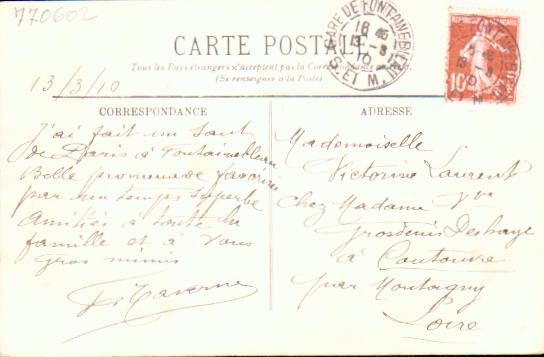 770602
CARTE POSTALE
Tous les Pays étrangers n'acceptent pas la Correspondance
(Se renseigner à la Poste)
GARE DE FONTAINEBLEAU
18 45
13 -3
10
S. ET M.
REPUBLIQUE FRANÇAISE
10
13/3/10
CORRESPONDANCE
J'ai fait un saut
de Paris à Fontainebleau
Belle promenade favorisée
par un temps superbe
Amitiés à toute la
famille et à vous
gros mimis
Taverne
ADRESSE
Mademoiselle
Victorine Laurent
chez Madame Vve
Grosdenis Deshaye
à Coutouvre
par Montagny
Loire